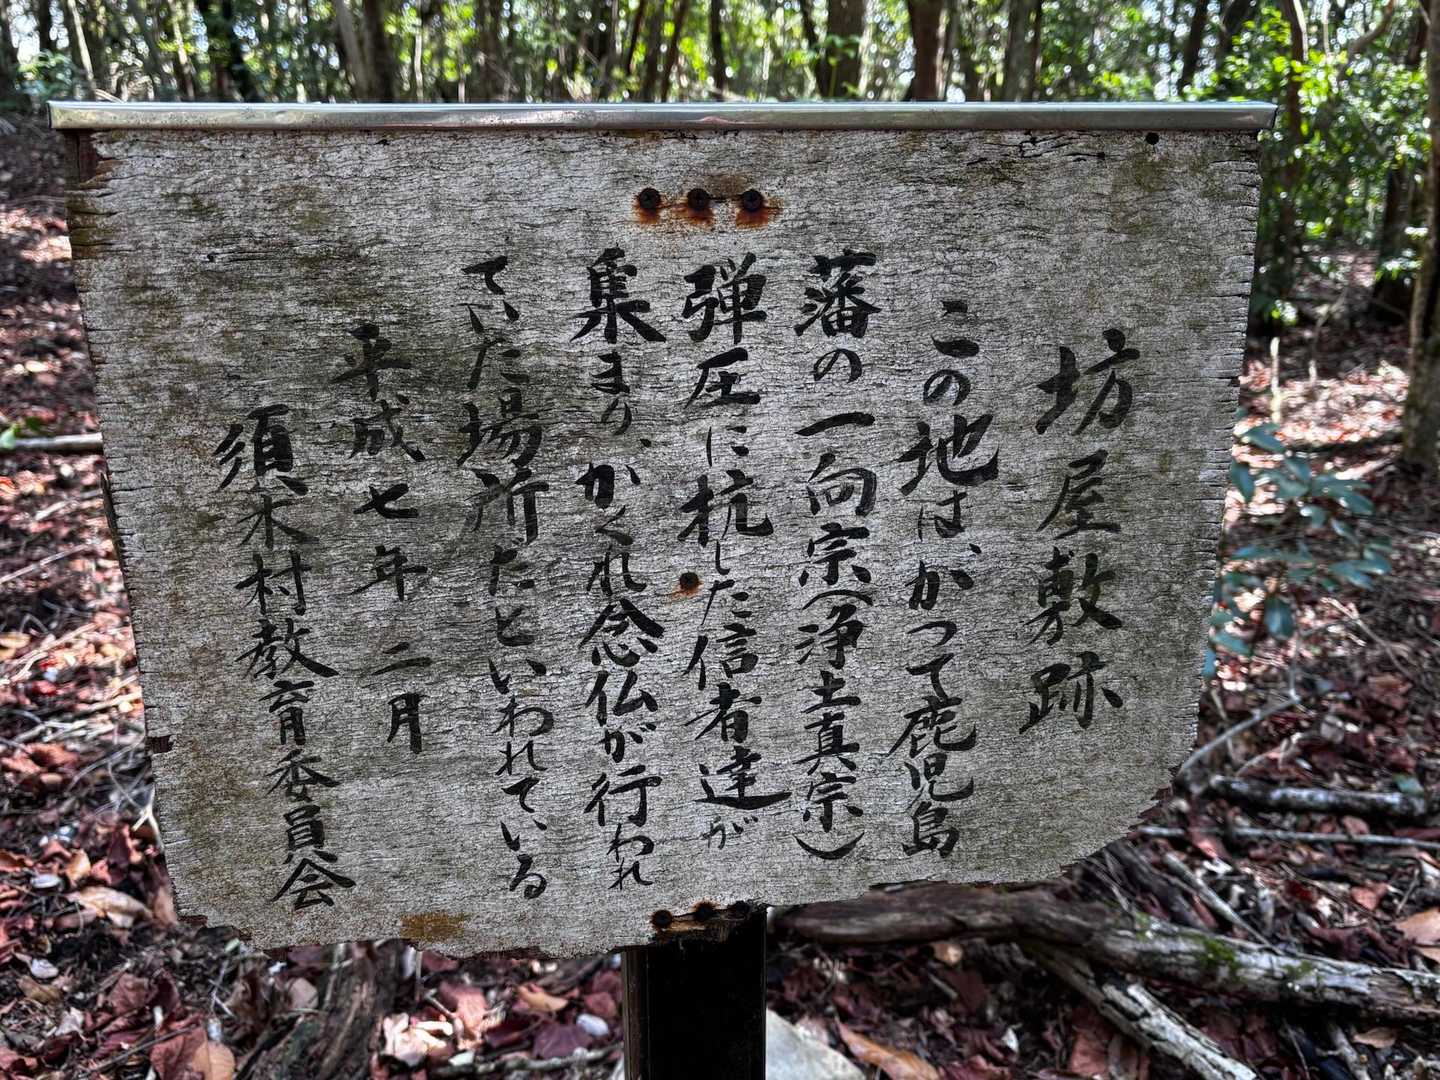 坊屋敷跡
この地は、かつて鹿児島
藩の一向宗(浄土真宗)
弾圧に抗した信者達が
集まり、かくれ念仏が行われ
ていた場所だといわれている
平成七年二月
須木村教育委員会